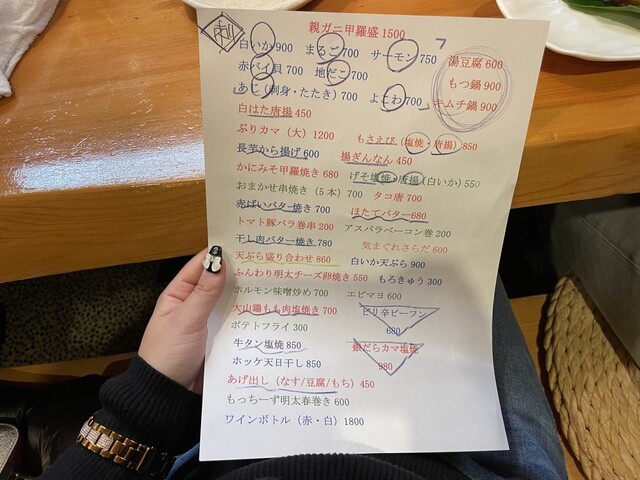 親ガニ甲羅盛 1500
白いか 900 まるご 700 サーモン 750
赤バイ貝 700 地だこ 700
あじ(刺身・たたき) 700 よこわ 700
湯豆腐 600
もつ鍋 900
キムチ鍋 900
白はた唐揚 450
ぶりカマ(大)1200 もさえび(塩焼・唐揚)850
長芋から揚げ 600 揚ぎんなん 450
かにみそ甲羅焼き 680 げそ塩焼・唐揚(白いか)550
おまかせ串焼き(5本)700 タコ唐 700
赤ばいバター焼き 700 ほたてバター 680
トマト豚バラ巻串 200 アスパラベーコン巻 200
干し肉バター焼き 780 気まぐれさらだ 600
天ぷら盛り合わせ 860 白いか天ぷら 900
ふんわり明太チーズ卵焼き 550 もろきゅう 300
ホルモン味噌炒め 700 エビマヨ 600
大山鶏もも肉塩焼き 700 ピリ辛ビーフン
680
ポテトフライ 300
牛タン塩焼 850 銀だらカマ塩焼
980
ホッケ天日干し 850
あげ出し(なす/豆腐/もち)450
もっちーず明太春巻き 600
ワインボトル(赤・白)1800